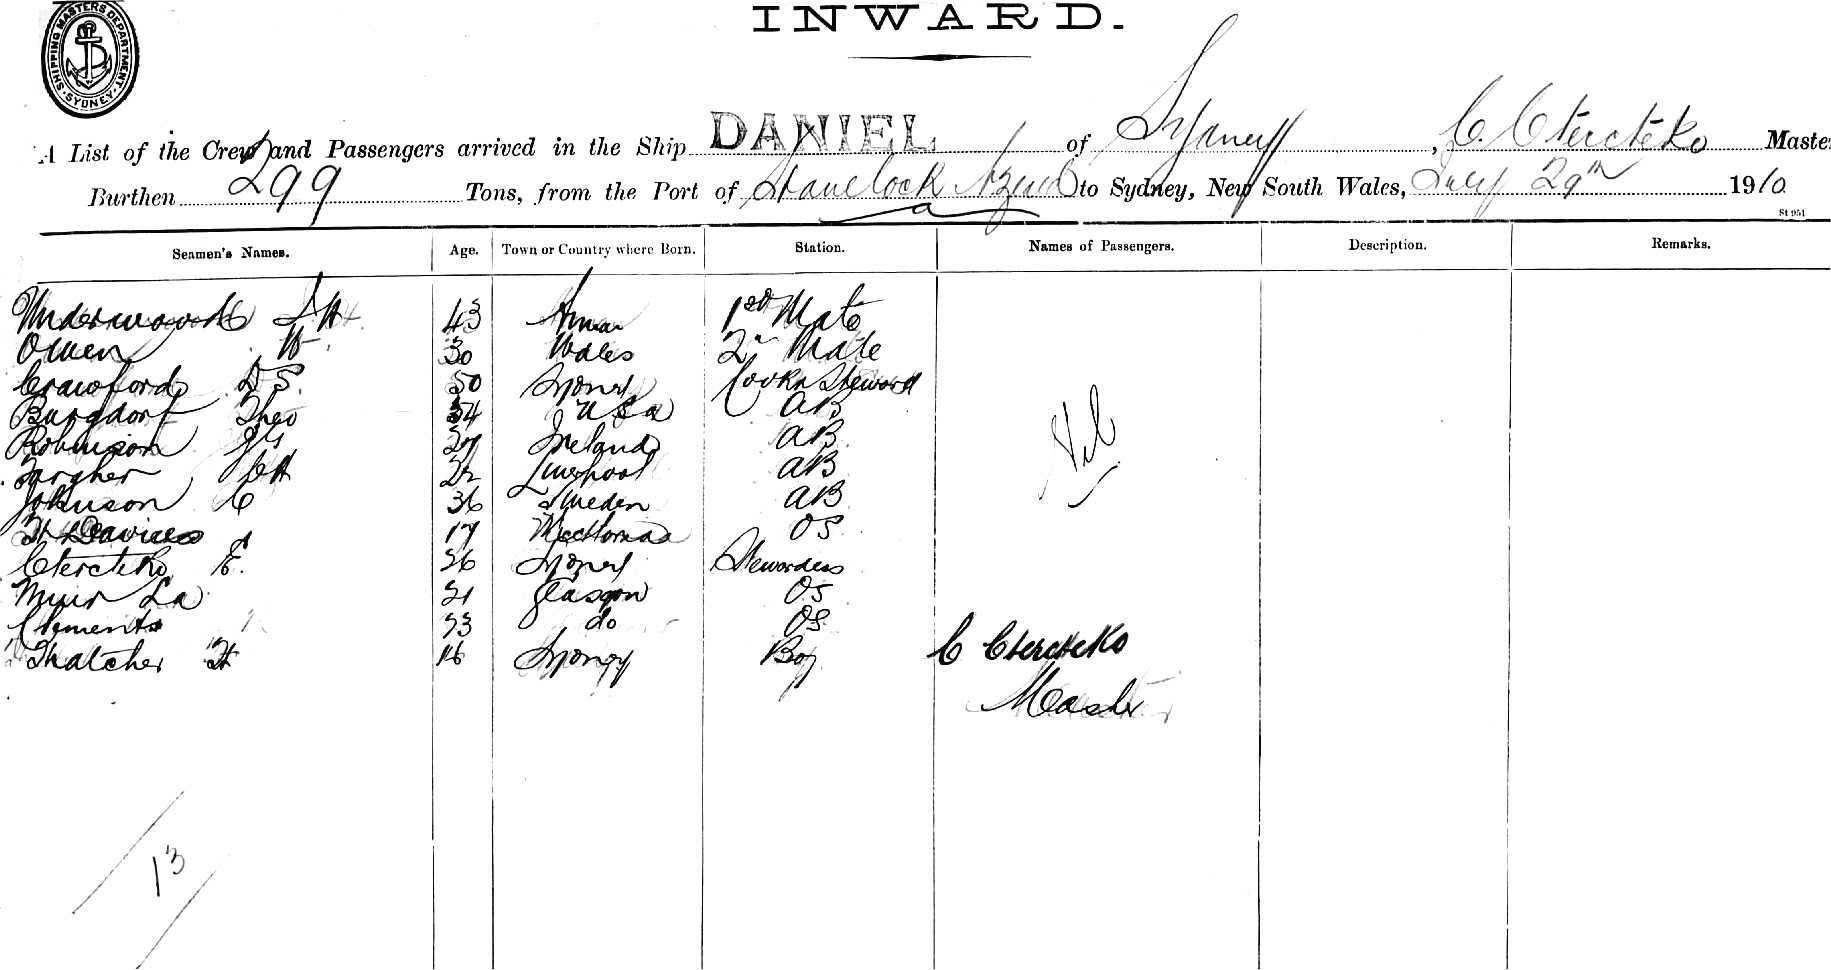 INWARD.
SHIPPING MASTERS DEPARTMENT. SYDNEY
A List of the Crew and Passengers arrived in the Ship DANIEL of Sydney, C. Ctercteko Maste
Burthen 299 Tons, from the Port of Havelock N Zeal to Sydney, New South Wales, July 29th 1910
St 951
Seamen's Names. Age. Town or Country where Born. Station. Names of Passengers. Description. Remarks.
Underwood 43 1st Mate
Owen W 30 Wales 2n Mate
Crawford D S. 50 Sydney Cook n Steward
Burgdorf Theo 34 U S a AB
Robinson Ireland AB
Fargher CH 22 Liverpool AB
Johnson C 36 Sweden AB
H Davies 17 OS
Ctercteko E. 36 Sydney Stewardess
Muir La 21 Glasgow OS
Clements 23 do OS
Thatcher H 16 Sydney Boy
Nil
C Ctercteko
Master
13